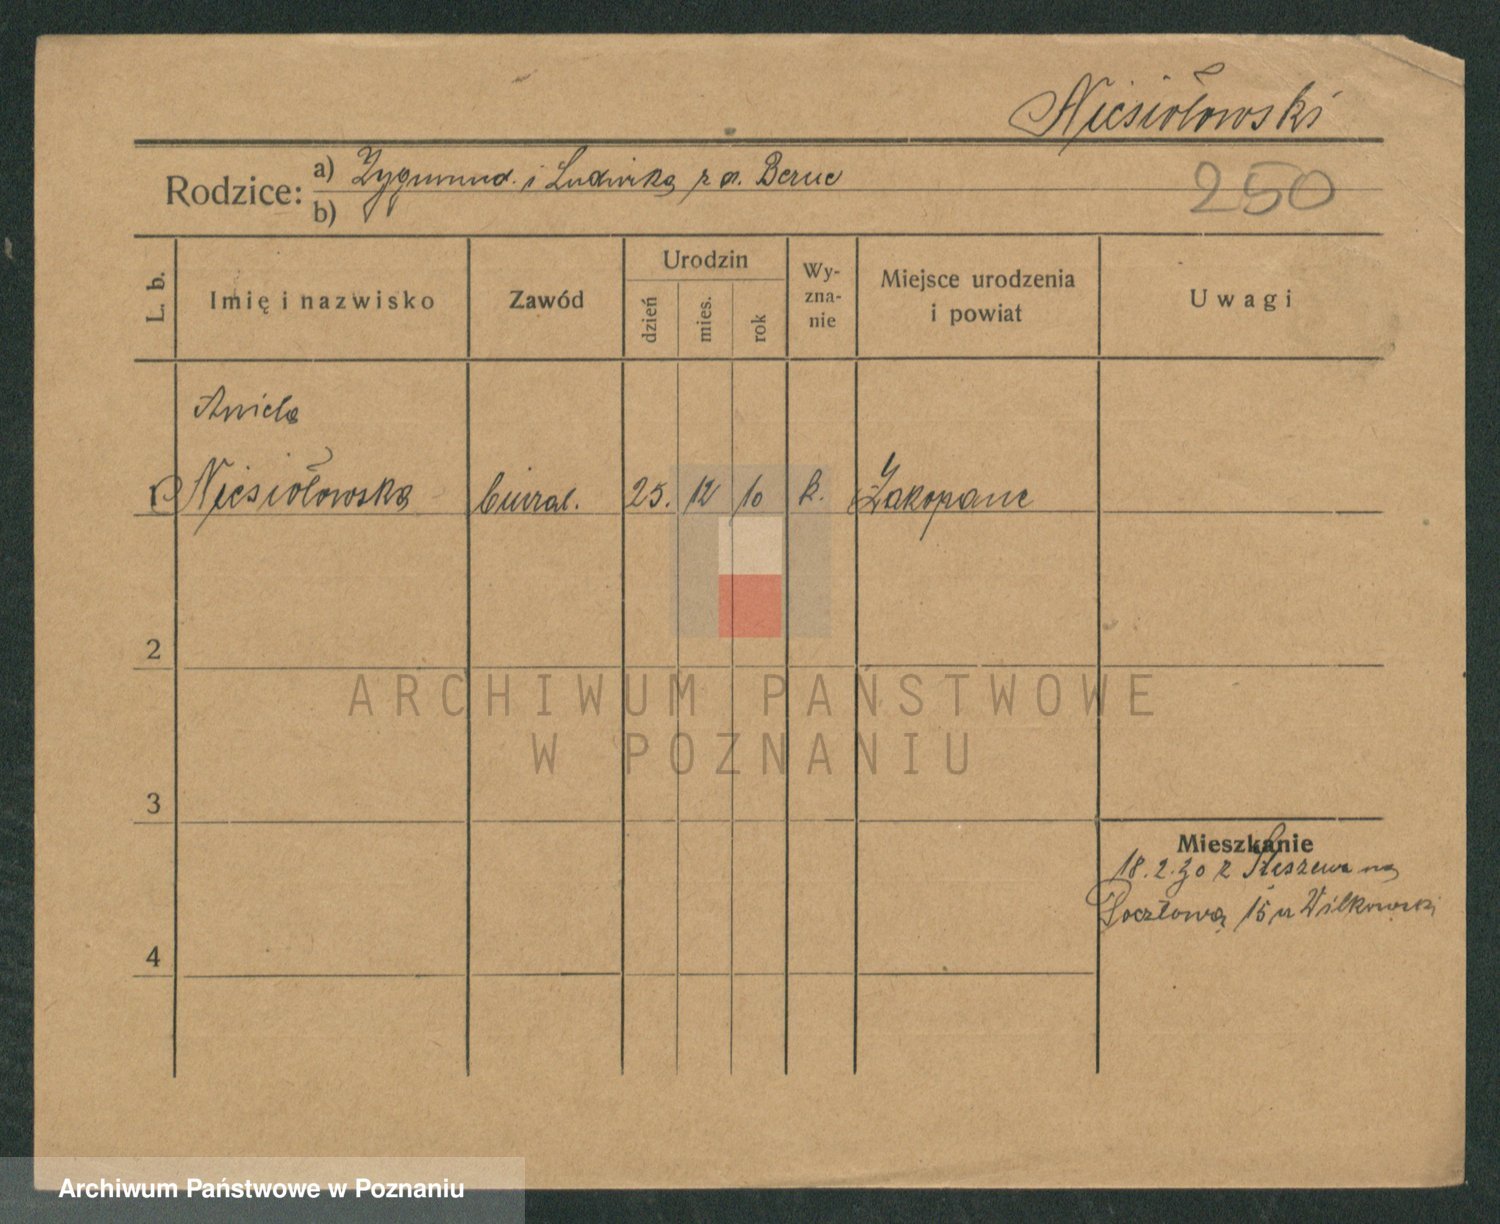 Niesiołowski
Rodzice: a) Zygmund. i Ludwika z d.
b)
250
L. b. Imię i nazwisko Zawód Urodzin dzień mies. rok Wy-zna-nie Miejsce urodzenia i powiat Uwagi
Aniela
1 Niesiołowska biural. 25. 12 10 k. Zakopane
2
ARCHIWUM PAŃSTWOWE
W POZNANIU
3
Mieszkanie
18.2.30 z na
Pocztową 15 u Wilkowski
4
Archiwum Państwowe w Poznaniu